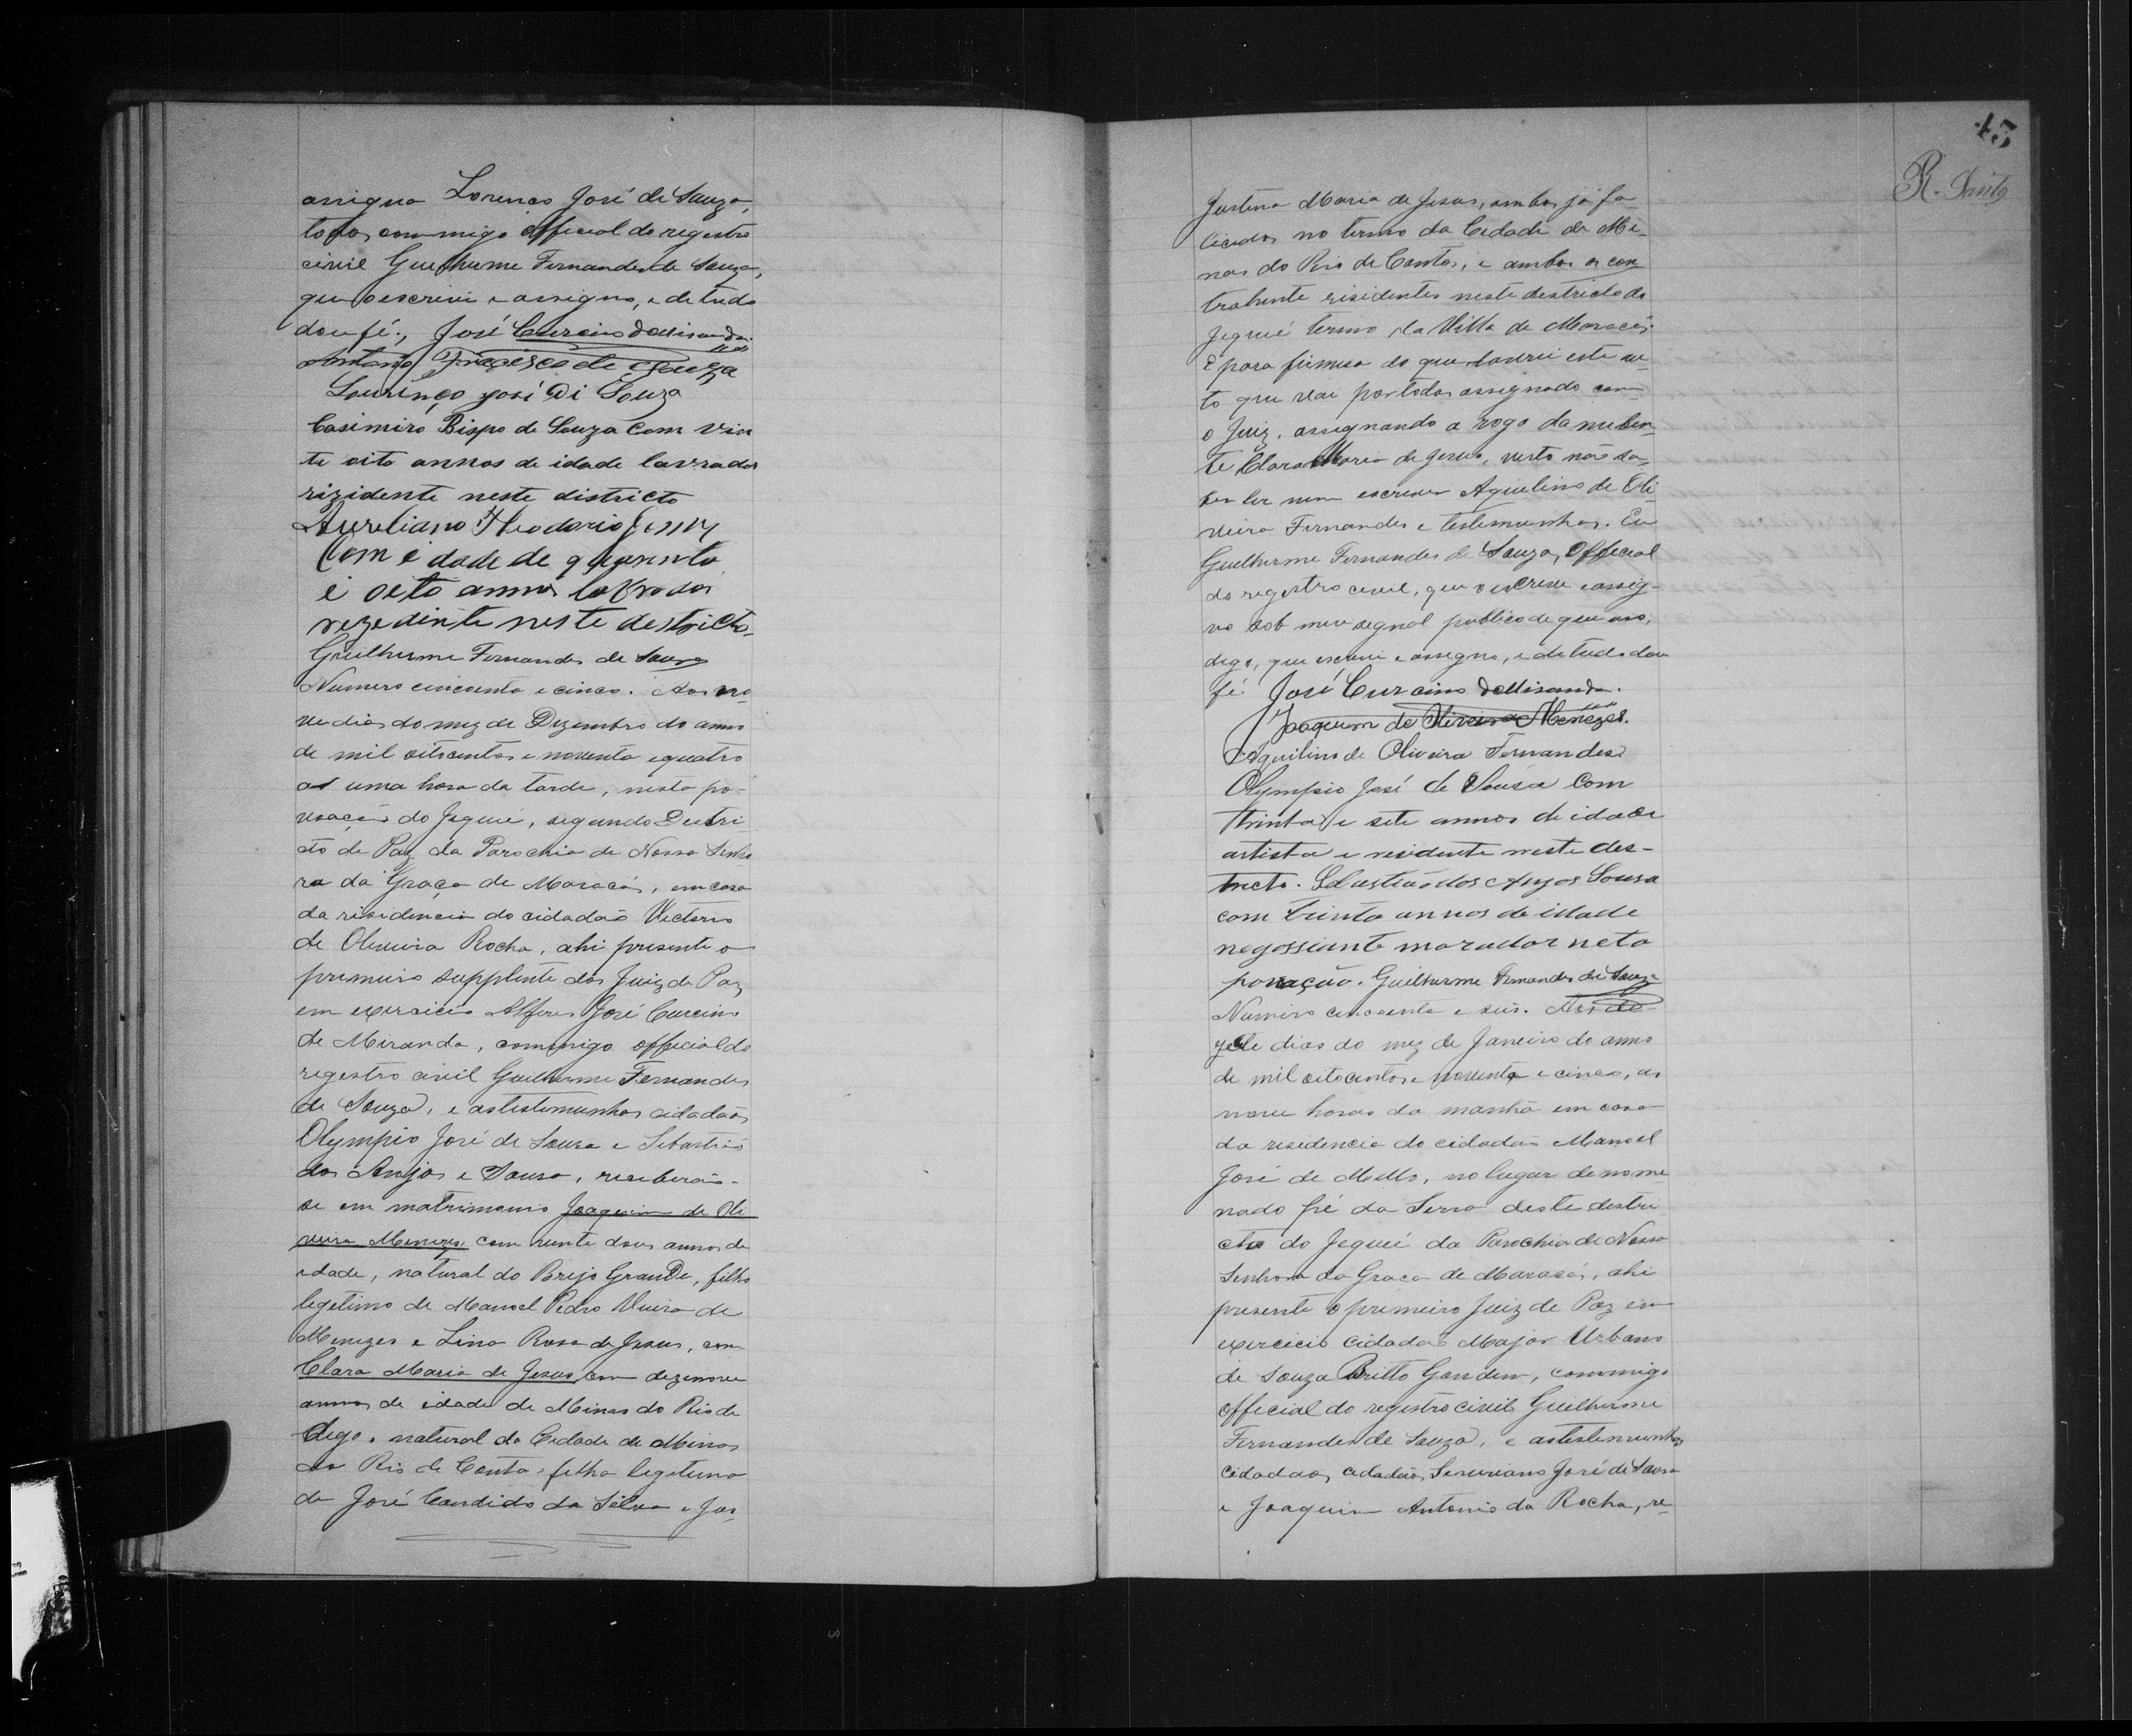 assigna Lorenço José de Souza,
todos commigo official do registro
civil Guilherme Fernandes de Souza,
que o escrivi e assigno, e de tudo
dou fé., José Curcino de Miranda.
Antonio Francisco de Souza
Lourenço José Di Souza
Casimiro Bispo de Souza com vin
te oito annos de idade lavrador
rizidente neste districto
Aureliano Theodorio
Com e dade de quarenta
e oito annos lavrador
rezedinte neste destricto.
Guilherme Fernandes de Souza
Numero cincoenta e cinco. Aos no
ve dias do mez de Dezembro do anno
de mil oitocentos e noventa e quatro
as uma hora da tarde, nesta po-
voação do Jequié, segundo Destri
cto de Paz da Parochia de Nossa Senho
ra da Graça de Maracás, em casa
da risidencia do cidadão Victorio
de Oliveira Rocha, ahi presente o
primeiro supplente dos Juiz de Paz
em exercicio Alferes José Curcino
de Miranda, commigo official do
registro civil Guilherme Fernandes
de Souza, e as testemunhas cidadãos
Olympio José de Souza e Sebastião
dos Anjos e Souza, receberão-
se em matrimonio Joaquim de Oli
veira Menezes, com vinte dous annos de
idade, natural do Brejo Grande, filho
legitimo de Manoel Pedro Vieira de
Menezes e Lina Rosa de Jesus, com
Clara Maria de Jesus com dezenove
annos de idade de Minas do Rio de
digo, natural da Cidade de Minas
do Rio de Contas, filha legetima
de José Candido da Silva e Jus
45
R. Santos
Justina Maria de Jesus, ambos já fa-
licidos no termo da Cidade de Mi-
nas do Rio de Contas, e ambos os con
trahente risidentes neste destricto do
Jequié termo da Villa de Maracás.
E para firmesa do que lavrei este au-
to que vae por todos assignado com
o Juiz, assignando a rogo da nuben
te Clara Maria de Jesus, visto não sa-
ber ler nem escrever Aquilino de Oli
veira Fernandes e testemunhas. Eu
Guilherme Fernandes de Souza, Official
do registro civil, que o escrevi e assig-
no sob meu signal publico de que uso,
digo, que escrevi e assigno, e de tudo dou
fé. José Curcino de Miranda.
Joaquim de Oliveira Menezes.
Aquilino de Oliveira Fernandes
Olympio José de Sousa Com
trinta e sete annos de idade
artista e residente neste des-
tricto. Sebastião dos Anjos Sousa
com trinta annos de idade
negossiante morador neta
povação. Guilherme Fernandes de Souza
Numiro cincoenta e seis. Aos de
zete dias do mez de Janeiro do anno
de mil oitocentos e noventa e cinco, as
nove horas da manhã em casa
da residencia do cidadão Manoel
José de Mello, no lugar denomi
nado Pé da Serra deste destri
cto do Jequié da Parochia de Nossa
Senhora da Graça de Maracás, ahi
presente o primeiro Juiz de Paz em
exercicio cidadão Major Urbano
de Souza Britto Gondim, commigo
official do registro civil Guilherme
Fernandes de Souza, e as testemunhas
cidadãos, cidadãos Severiano José de Sousa
e Joaquim Antonio da Rocha, re-